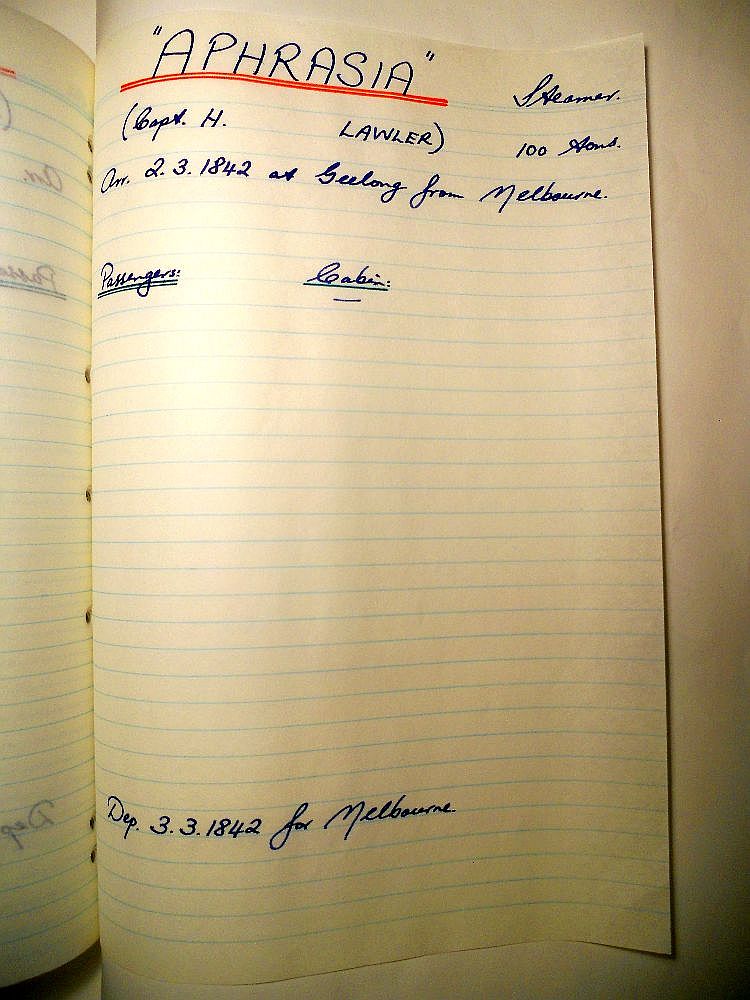 "APHRASIA" Steamer.
(Capt. H. LAWLER) 100 tons.
Arr. 2.3.1842 at Geelong from Melbourne.
Passengers: Cabin:
—
Dep. 3.3.1842 for Melbourne.